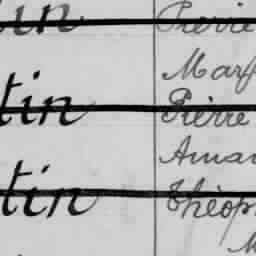 in Pierre
Mar
tin Pierre
Aman
tin Théoph
M